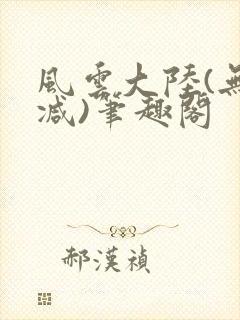 風雲大陸(無
減)筆趣閣
郝漢禎